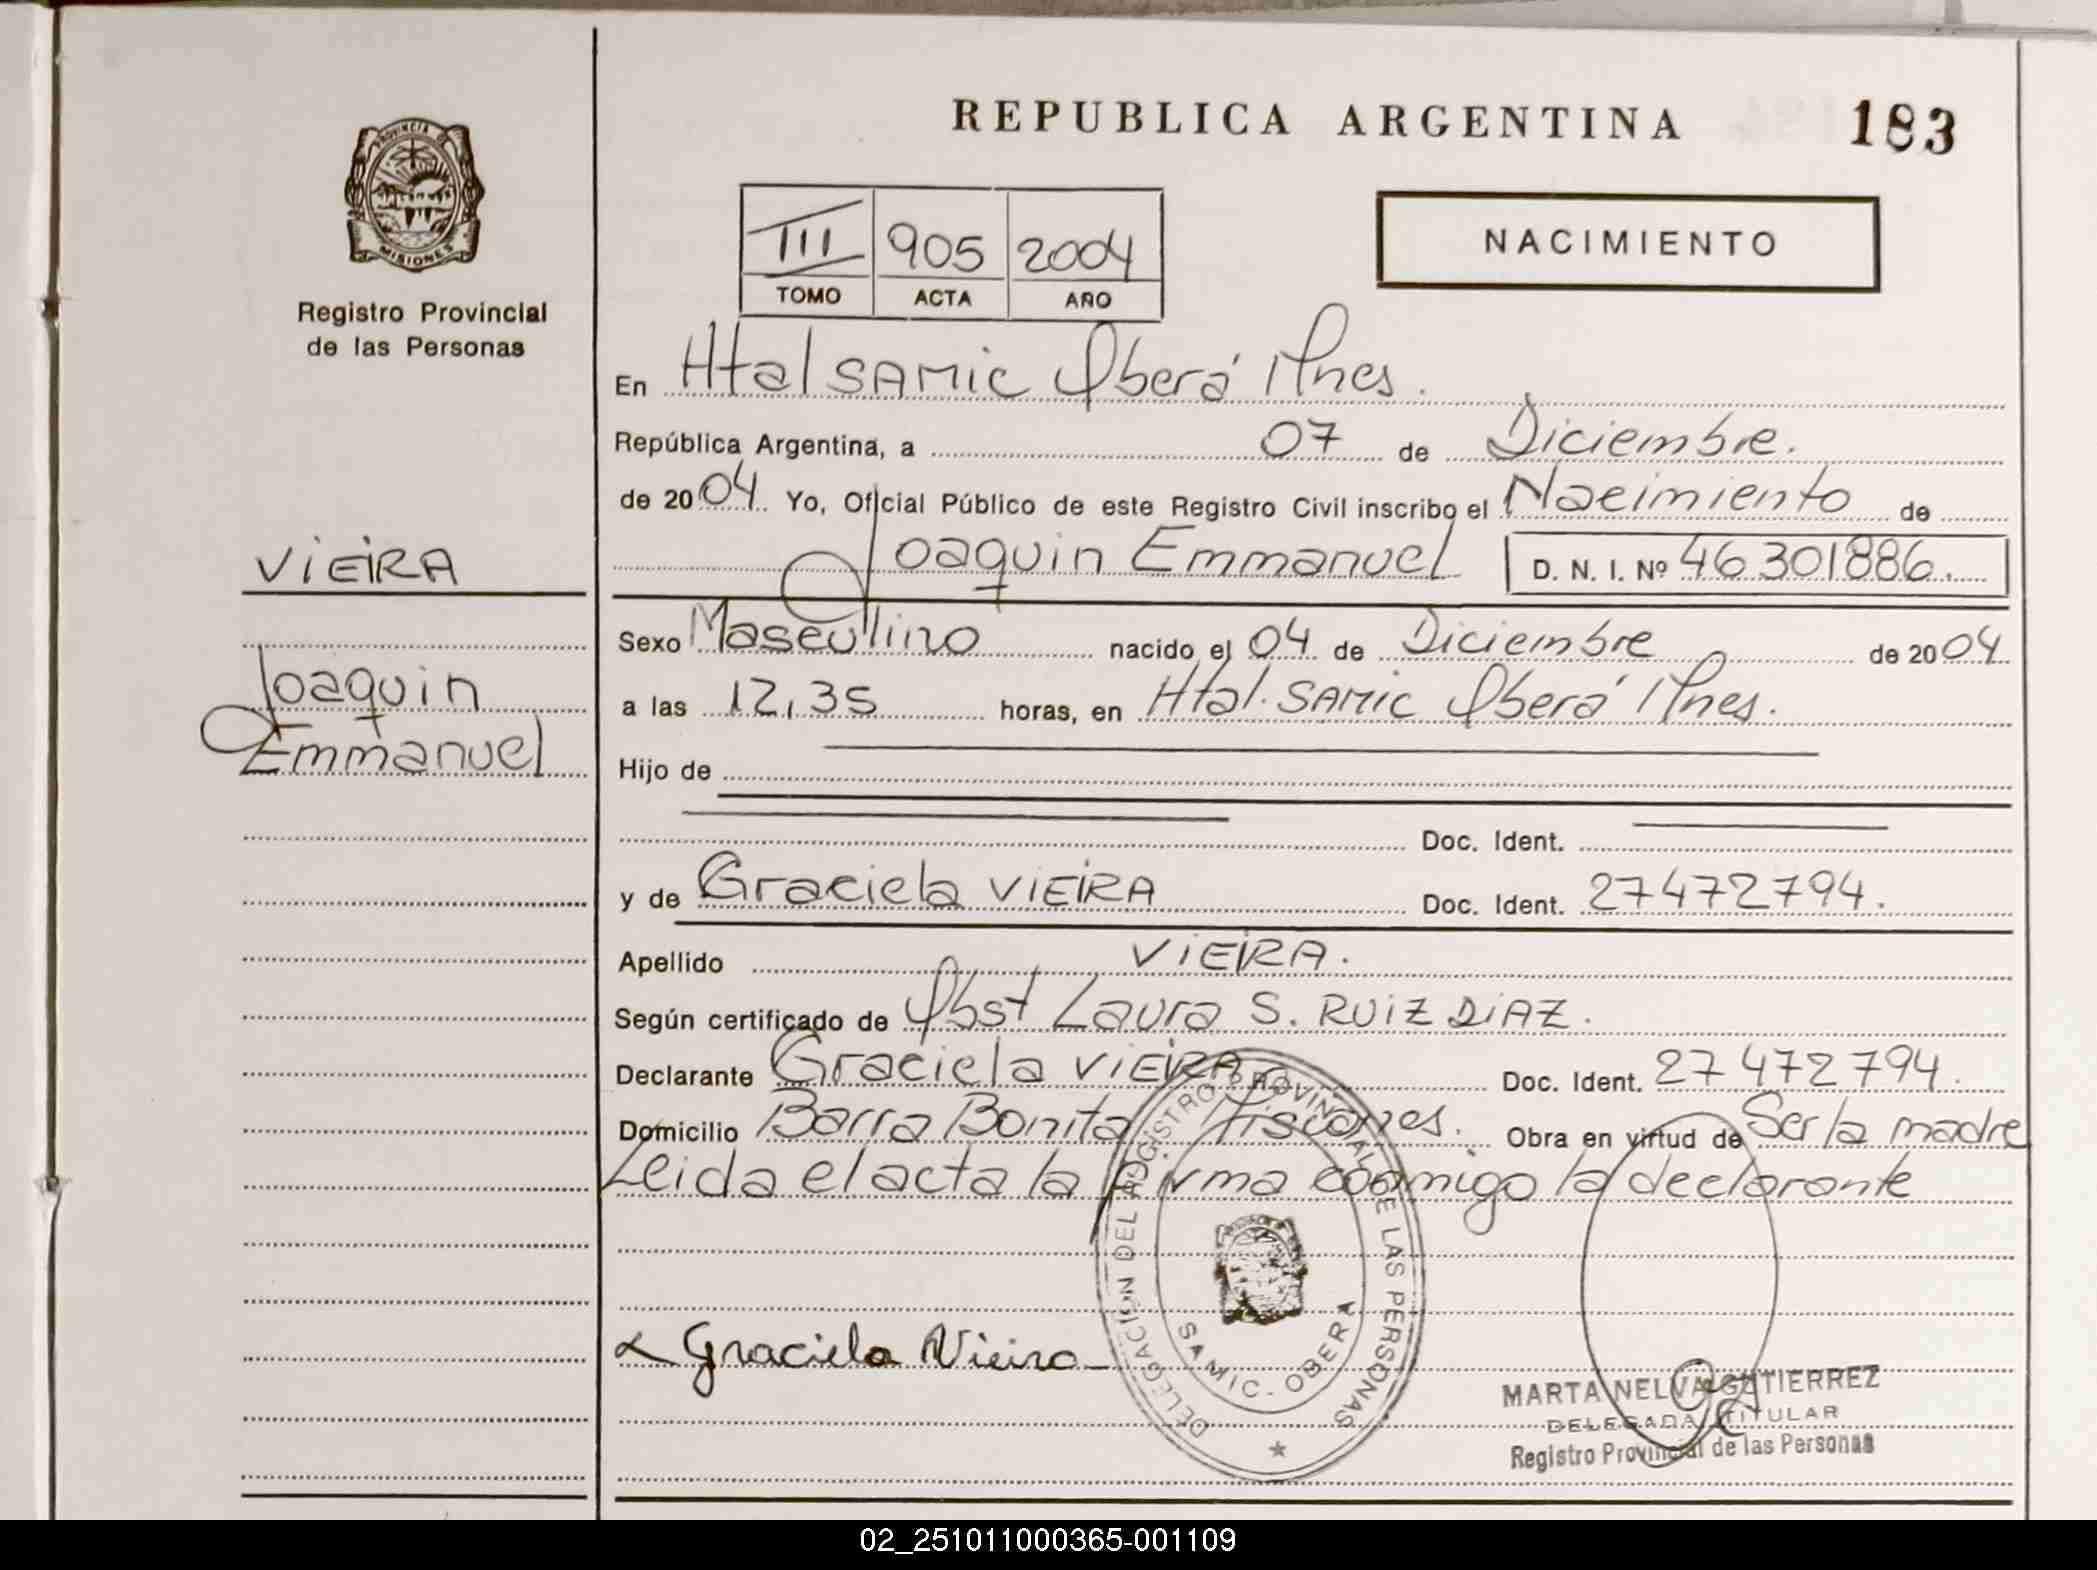 REPUBLICA ARGENTINA 183
PROVINCIA DE MISIONES
Registro Provincial
de las Personas
III 905 2004
TOMO ACTA AÑO
NACIMIENTO
En Htal SAMIC Oberá Mnes.
República Argentina, a 07 de Diciembre.
de 2004. Yo, Oficial Público de este Registro Civil inscribo el Nacimiento de
Joaquin Emmanuel D. N. I. Nº 46301886.
VIEIRA
Joaquin
Emmanuel
Sexo Masculino nacido el 04 de Diciembre de 2004
a las 12,35 horas, en Htal. SAMIC Oberá Mnes.
Hijo de
Doc. Ident.
y de Graciela VIEIRA Doc. Ident. 27472794.
Apellido VIEIRA.
Según certificado de Obst Laura S. RUIZ DIAZ.
Declarante Graciela VIEIRA Doc. Ident. 27472794.
Domicilio Barra Bonita Misiones. Obra en virtud de Ser la madre
Leida el acta la firma conmigo la declarante
DELEGACIÓN DEL REGISTRO PROVINCIAL DE LAS PERSONAS
SAMIC - OBERA
Graciela Vieira
MARTA NELVA GUTIERREZ
DELEGADA TITULAR
Registro Provincial de las Personas
02_251011000365-001109